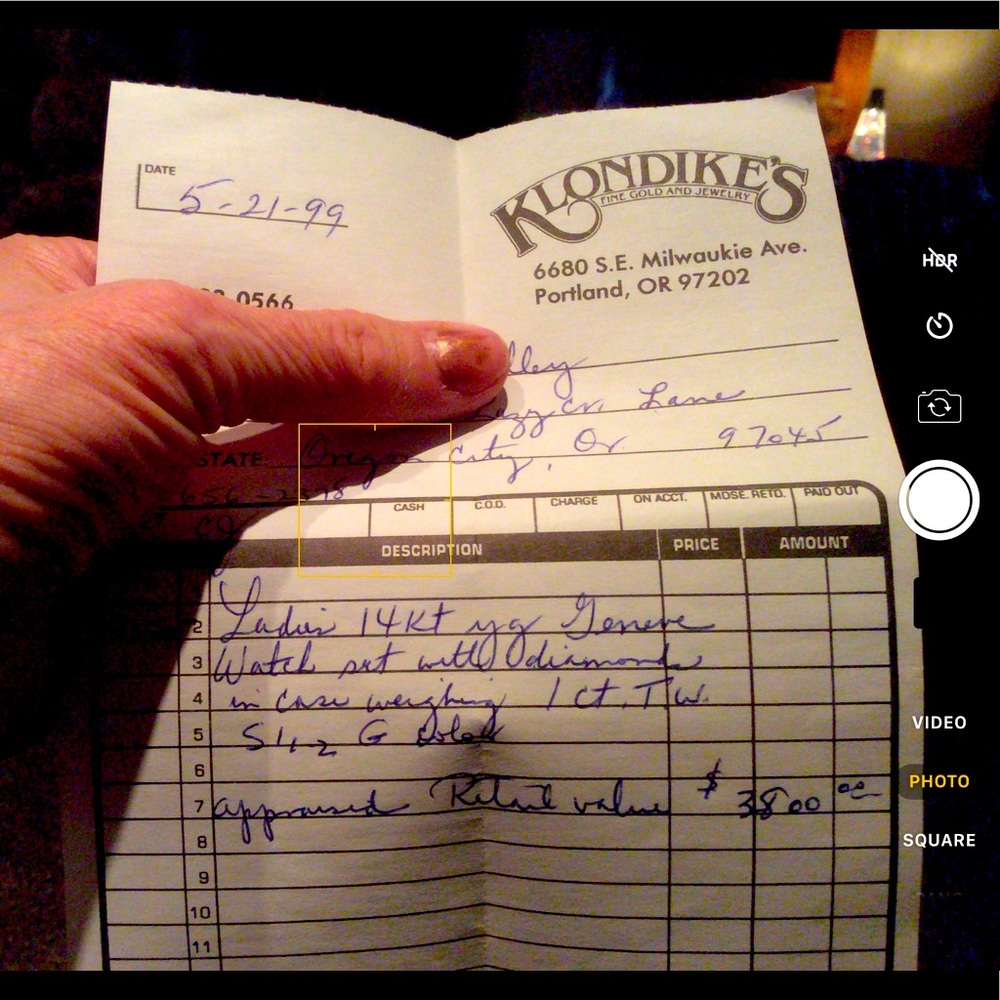 DATE
5-21-99
KLONDIKE'S
FINE GOLD AND JEWELRY
6680 S.E. Milwaukie Ave.
Portland, OR 97202
0566
lley
Lane
STATE Oregon City, Or 97045
CASH C.O.D. CHARGE ON ACCT. MDSE. RETD. PAID OUT
DESCRIPTION PRICE AMOUNT
2 Ladies 14Kt yg Geneve
3 Watch set with diamonds
4 in case weighing 1 ct. T.W.
5 SI1-2 G color
6
7 appraised Retail value $3800 00
8
9
10
11
HDR
VIDEO
PHOTO
SQUARE